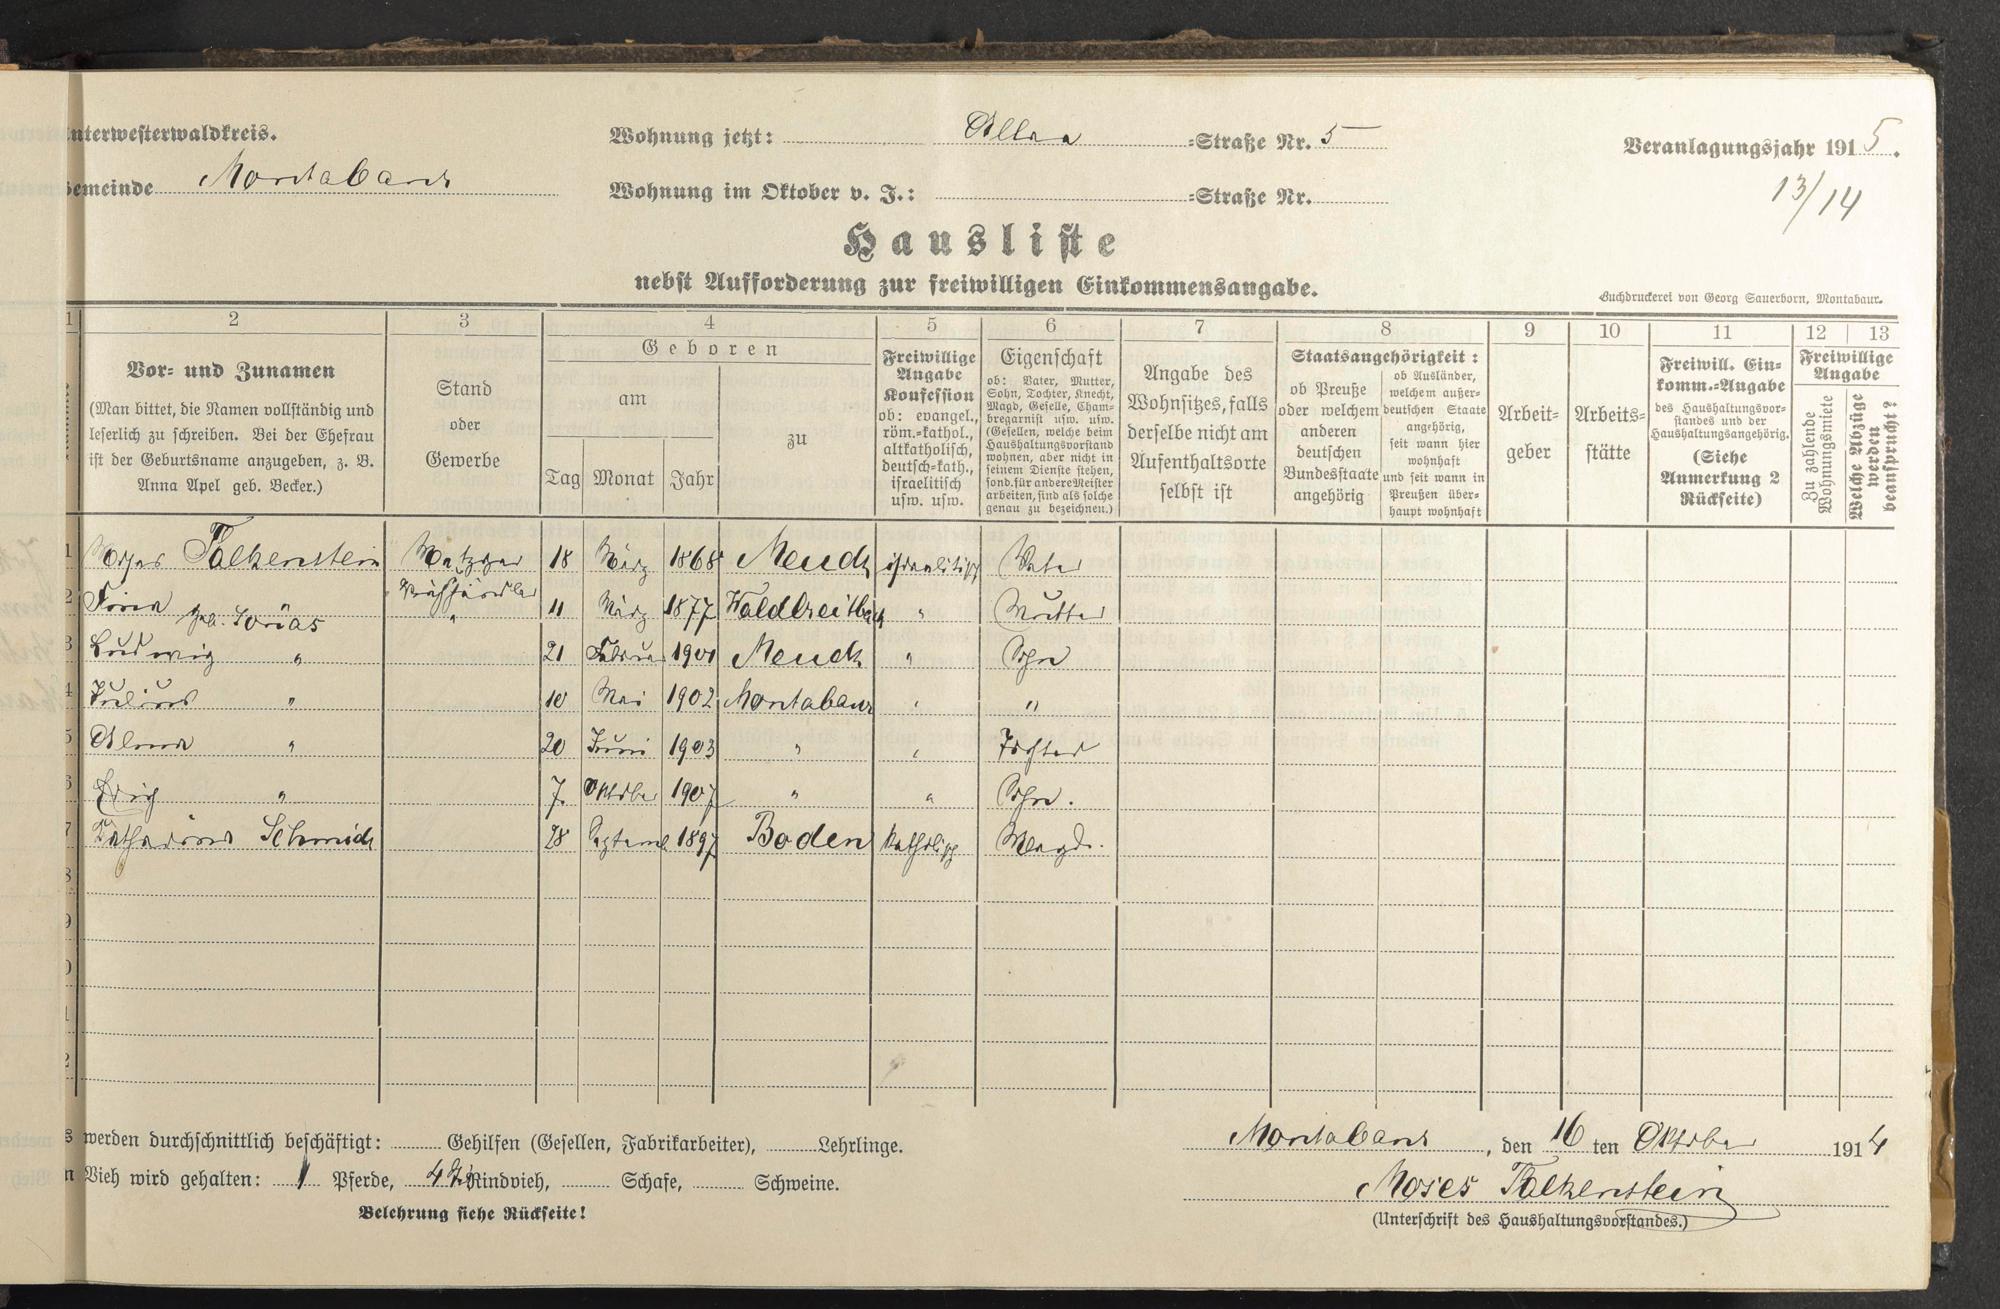 nterwesterwaldkreis.
Wohnung jetzt: Allee =Straße Nr. 5
Veranlagungsjahr 1915.
emeinde Montabaur
Wohnung im Oktober v. J.: =Straße Nr.
13/14
Hausliste
nebst Aufforderung zur freiwilligen Einkommensangabe.
Buchdruckerei von Georg Sauerborn, Montabaur.
1 2 3 4 5 6 7 8 9 10 11 12 13
Vor= und Zunamen
(Man bittet, die Namen vollständig und
leserlich zu schreiben. Bei der Ehefrau
ist der Geburtsname anzugeben, z. B.
Anna Apel geb. Becker.)
Stand
oder
Gewerbe
Geboren
am
Tag Monat Jahr
zu
Freiwillige
Angabe
Konfession
ob: evangel.,
röm.=kathol.,
altkatholisch,
deutsch=kath.,
israelitisch
usw. usw.
Eigenschaft
ob: Vater, Mutter,
Sohn, Tochter, Knecht,
Magd, Geselle, Cham=
bregarnist usw. usw.
(Gesellen, welche beim
Haushaltungsvorstand
wohnen, aber nicht in
seinem Dienste stehen,
sond. für andere Meister
arbeiten, sind als solche
genau zu bezeichnen.)
Angabe des
Wohnsitzes, falls
derselbe nicht am
Aufenthaltsorte
selbst ist
Staatsangehörigkeit:
ob Preuße
oder welchem
anderen
deutschen
Bundesstaate
angehörig
ob Ausländer,
welchem außer=
deutschen Staate
angehörig,
seit wann hier
wohnhaft
und seit wann in
Preußen über=
haupt wohnhaft
Arbeit=
geber
Arbeits=
stätte
Freiwill. Ein=
komm.=Angabe
des Haushaltungsvor=
standes und der
Haushaltungsangehörig.
(Siehe
Anmerkung 2
Rückseite)
Freiwillige
Angabe
Zu zahlende
Wohnungsmiete
Welche Abzüge
werden
beansprucht?
1 Moses Falkenstein Metzger 18 März 1868 Meudt israelitisch Vater
Viehhändler
2 " geb. Tobias " 11 März 1877 Waldbreitbach " Mutter
3 Ludwig " 21 Februar 1901 Meudt " Sohn
4 Julius " 10 Mai 1902 Montabaur " "
5 " 20 Juni 1903 " " Tochter
6 Erich " 7. Oktober 1907 " " Sohn.
7 Katharina Schmidt 28 Septemb 1897 Boden katholisch Magd.
8
9
0
1
2
s werden durchschnittlich beschäftigt: Gehilfen (Gesellen, Fabrikarbeiter), Lehrlinge.
Montabaur, den 16 ten Oktober 1914
n Vieh wird gehalten: 1 Pferde, 4 Rindvieh, Schafe, Schweine.
Moses Falkenstein
Belehrung siehe Rückseite!
(Unterschrift des Haushaltungsvorstandes.)